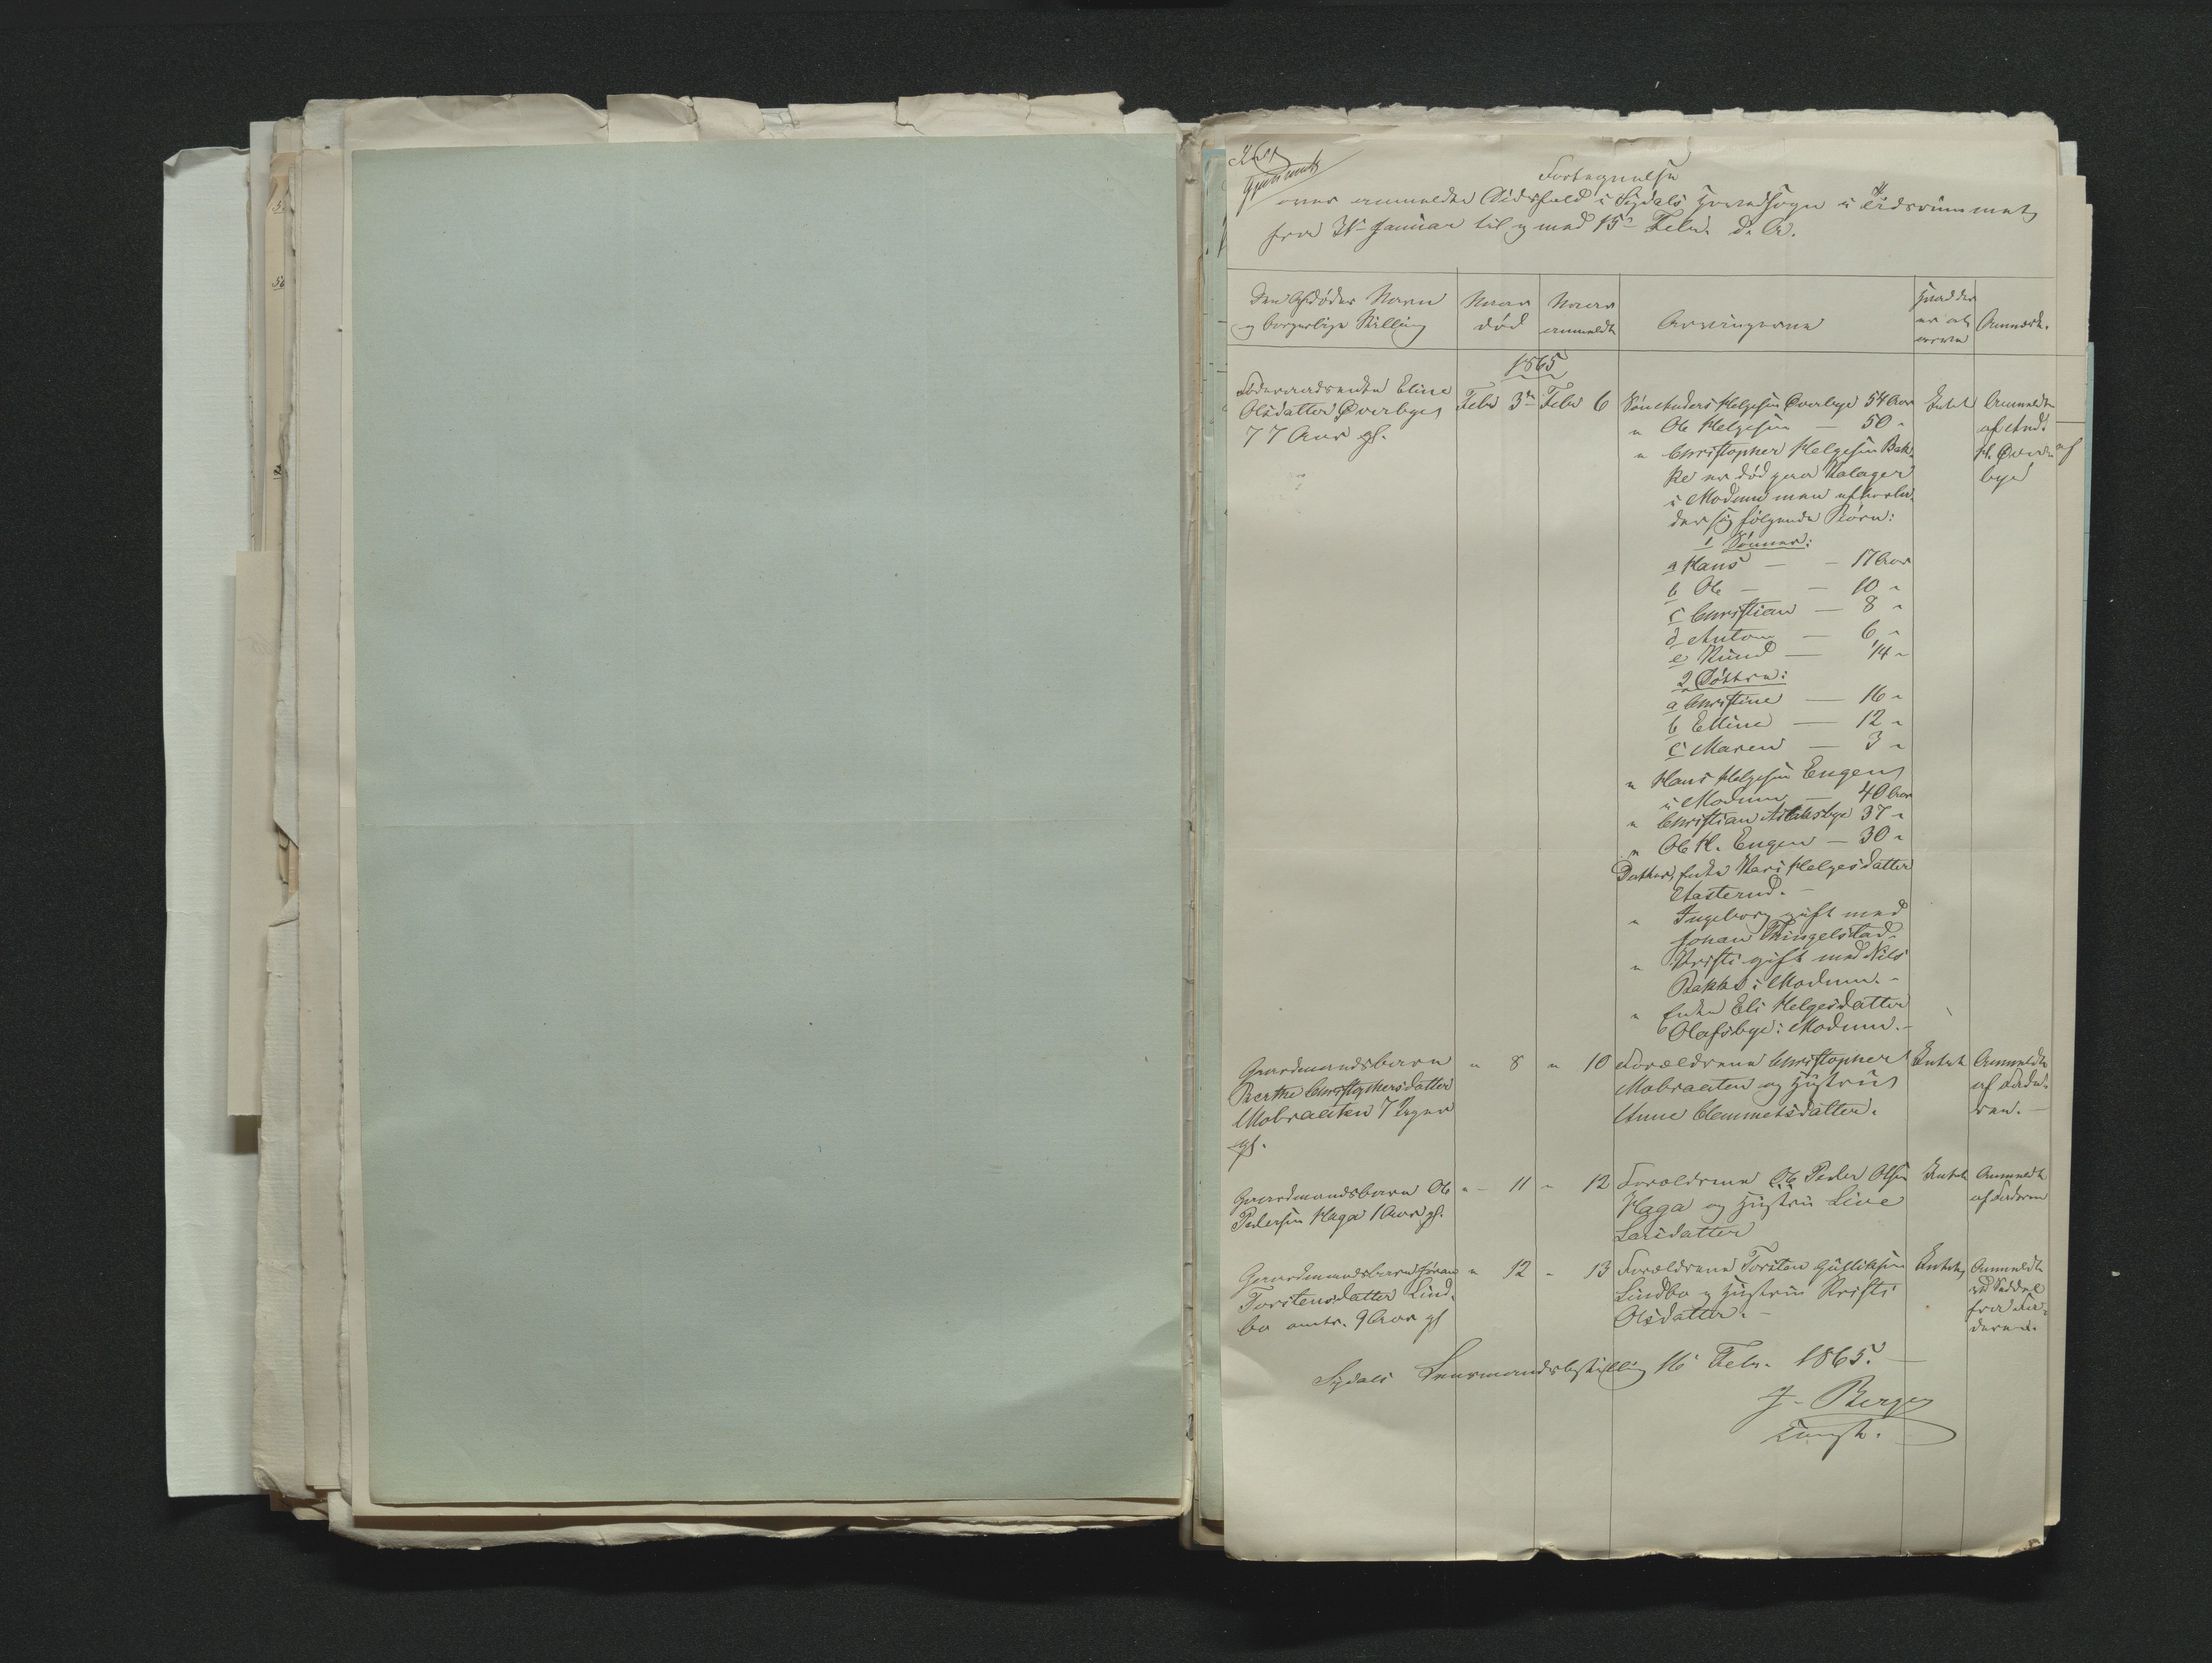 Fortegnelse
over anmeldte Dødsfald i Sigdals Hovedsogn i Tidsrummet
fra 31te Januar til og med 15de Febr. d. A.
Den Afdødes Navn
og borgerlige Stilling
Naar
død
Naar
anmeldt
Arvingerne
Hvad der
er at
arve
Anmærk.
1865
Føderaadsenke Eline
Olsdatter Øverbye
77 Aar gl.
Febr 3de
Febr 6
Søn Anders Helgesen Øverbye 54 Aar
" Ole Helgesen — 50 "
" Christopher Helgesen Bak-
ke er død paa Kalager
i Modum men efterla-
der sig følgende Børn:
1 Sønner:
a Hans — - 17 Aar
b Ole — — 10 "
c Christian — 8 "
d Anton — 6 "
e Knud — 14 "
2 Døttre:
a Christine — 16 "
b Elline — 12 "
c Maren — 3 "
" Hans Helgesen Engen
i Modum — 40 Aar
" Christian 37 "
" Ole H. Engen — 30 "
Datter, Enke Kari Helgesdatter
" Ingeborg gift med
Johan Thingelstad.
" Kristi gift med Nils
Bakke i Modum. -
" Enke Eli Helgesdatter
Olafsbye i Modum. -
Intet
Anmeldt
af And.
H. Øver-
bye
Gaardmandsbarn
Berthe Christophersdatter
Mobraaten 7 Dager
gl.
" 8
" 10
Forældrene Christopher
Mobraaten og Hustru
Anne Clemmetsdatter.
Intet
Anmeldt
af Fade-
ren. —
Gaardmandsbarn Ole
Pedersen Haga 1 Aar gl.
" - 11
- 12
Forældrene Peder Olsen
Haga og Hustru Live
Larsdatter
Intet
Anmeldt
af Faderen
Gaardmandsbarn Jøran
Torstensdatter Lind-
bo omtr. 9 Aar gl
" 12
- 13
Forældrene Torsten Gulliksen
Lindbo og Hustru Kristi
Olsdatter. -
Intet
Anmeldt
ved Seddel
fra Fa-
deren.
Sigdals Lensmandsbestilling 16 Febr. 1865. —
J. Berge
Const.